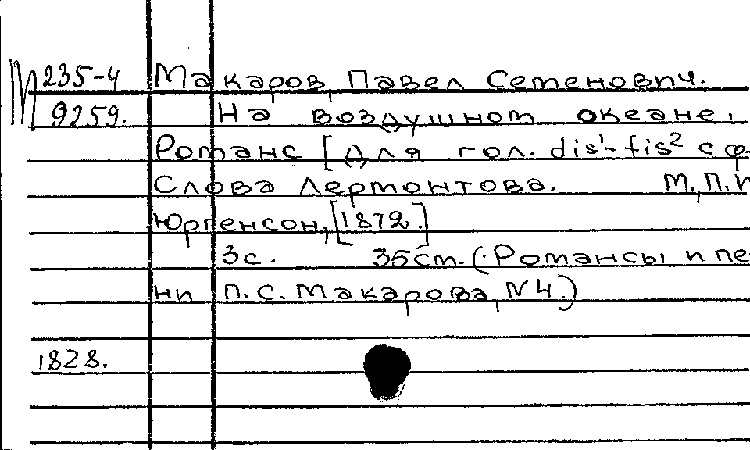 М 235-4 Макаров, Павел Семенович.
9259. На воздушном океане,
Романс [для гол. dis¹-fis² с ф
Слова Лермонтова. М., П. И
Юргенсон, [1872.]
3с. 35см. (Романсы и пе
ни П. С. Макарова, N 4.)
1828.